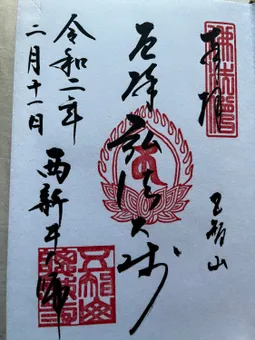 奉拝
五智山
厄除弘法大師
西新井大師
令和二年
二月十一日